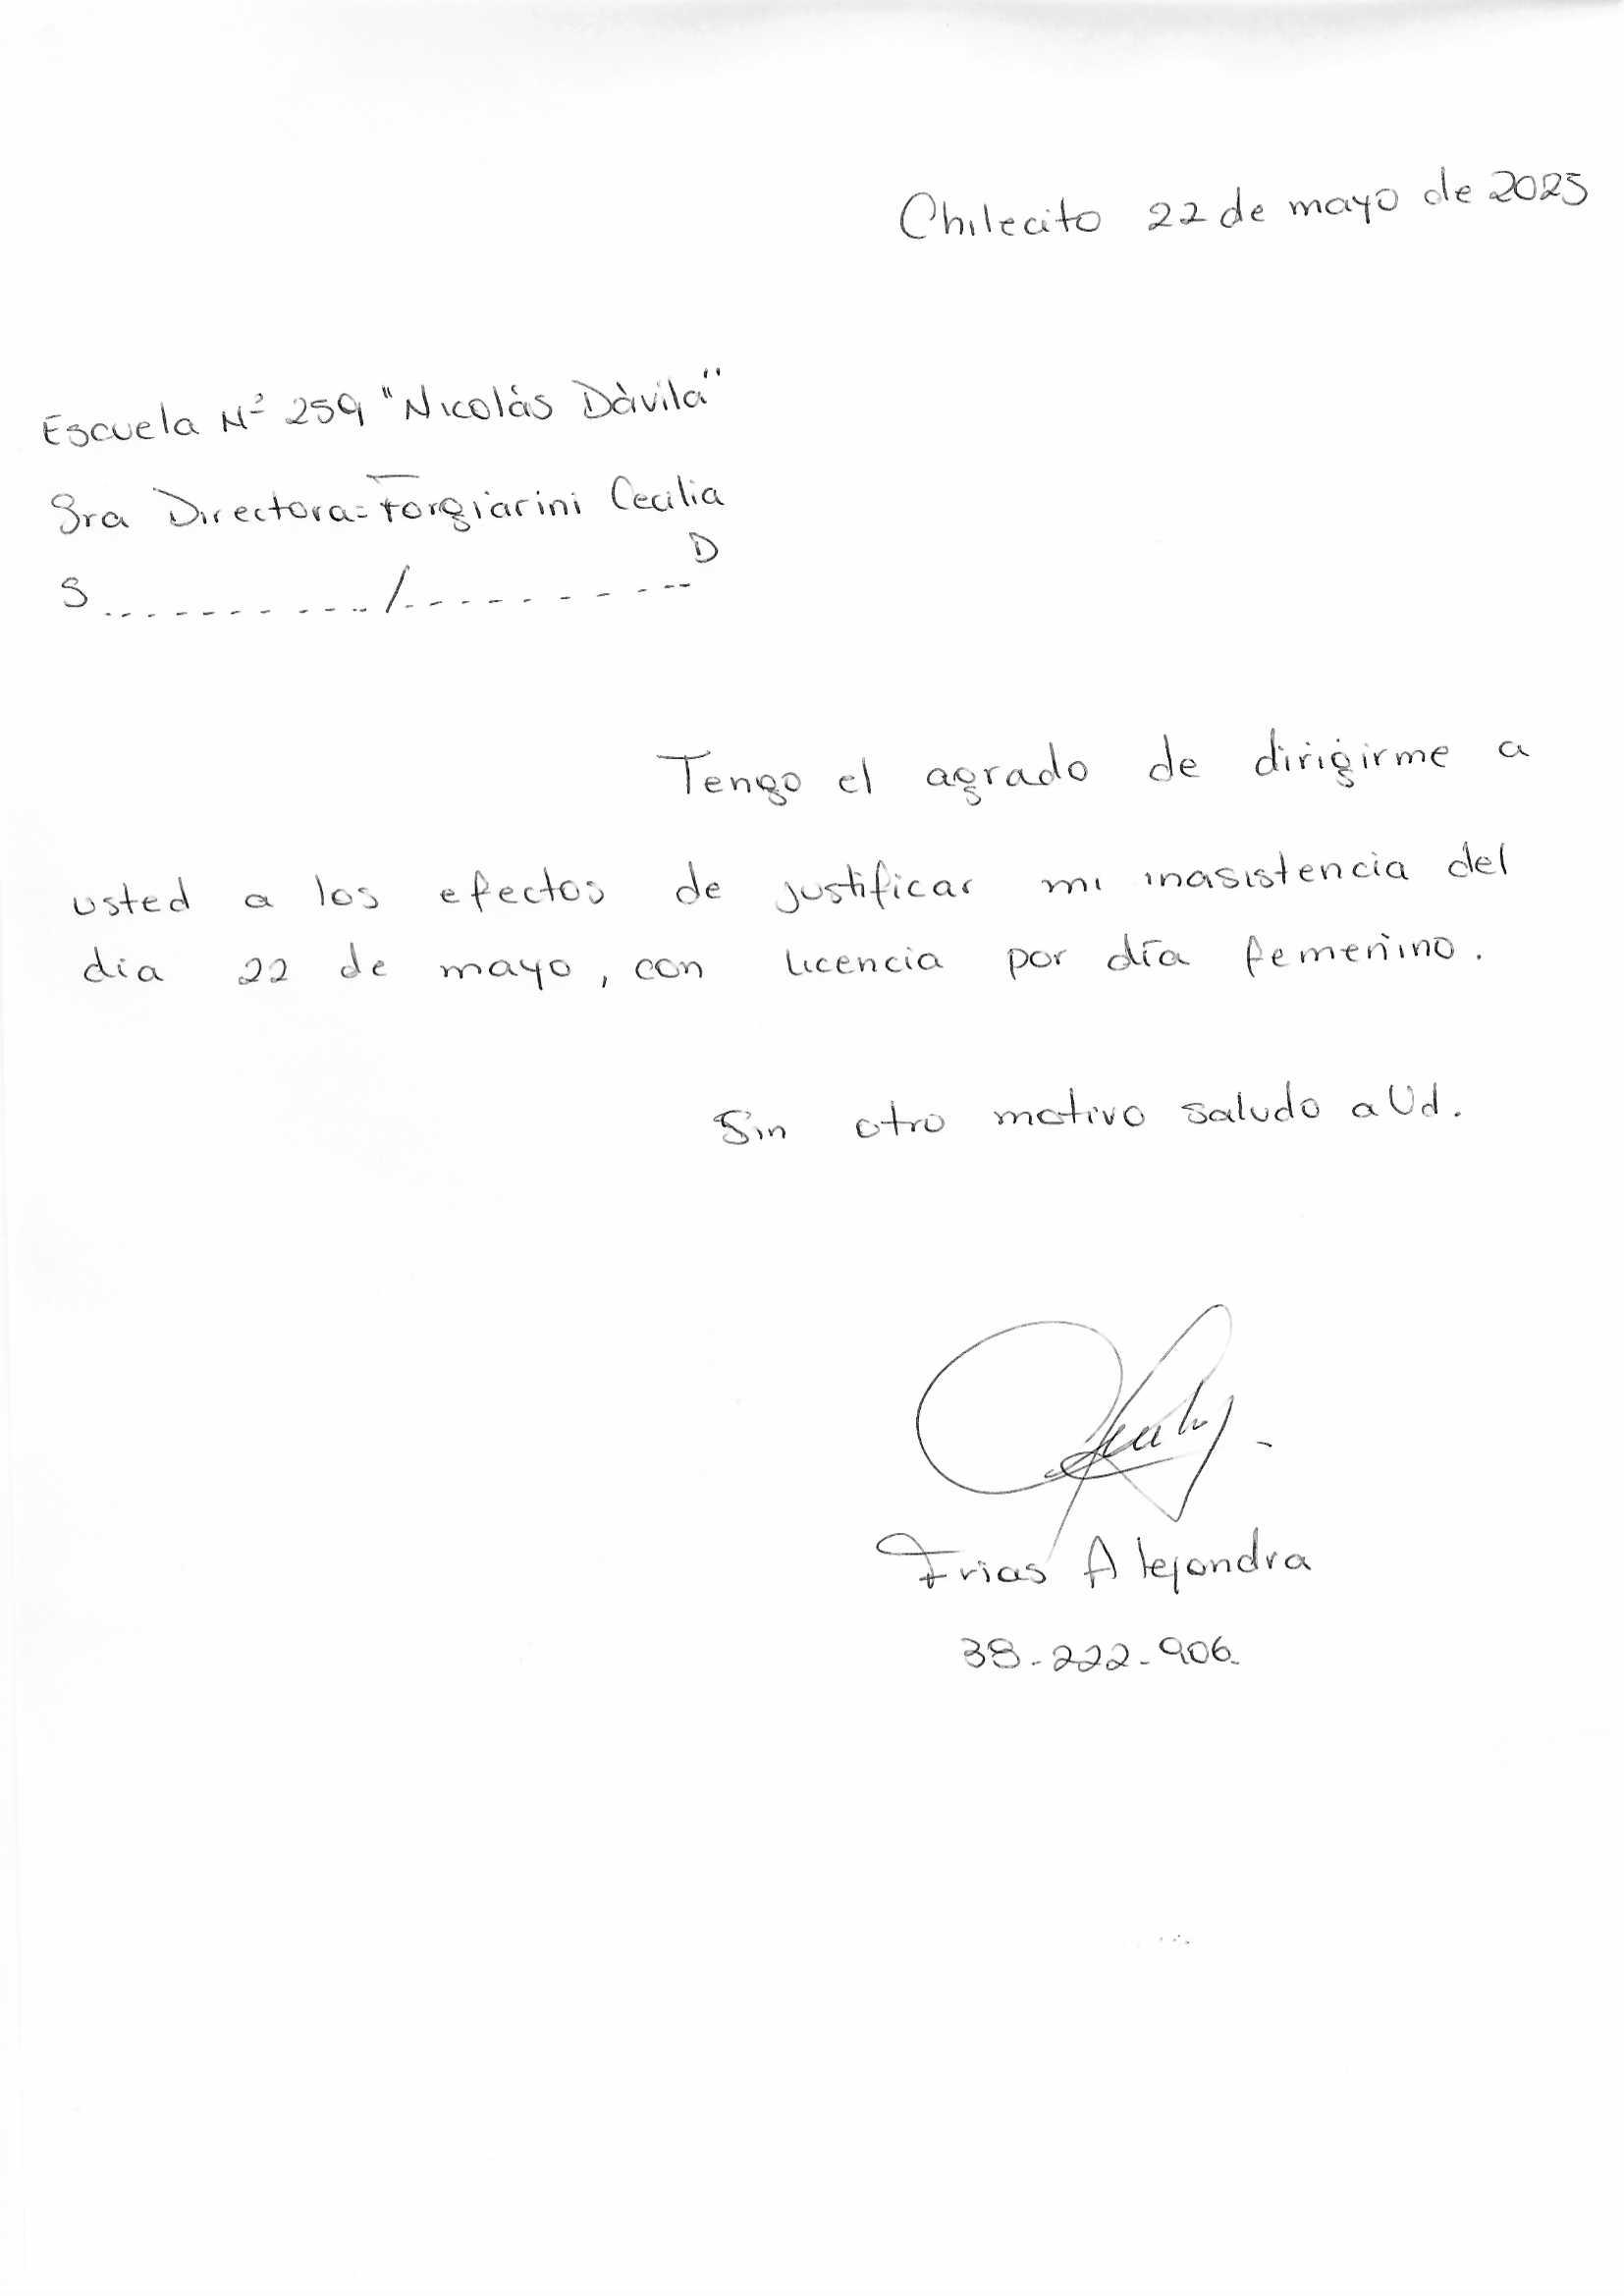 Chilecito 22 de mayo de 2025
Escuela Nº 259 "Nicolás Dávila"
Sra Directora: Forgiarini Cecilia
S............/............D
Tengo el agrado de dirigirme a
usted a los efectos de justificar mi inasistencia del
día 22 de mayo, con licencia por día femenino.
Sin otro motivo saludo a Ud.
Frias Alejandra
38-222-906.